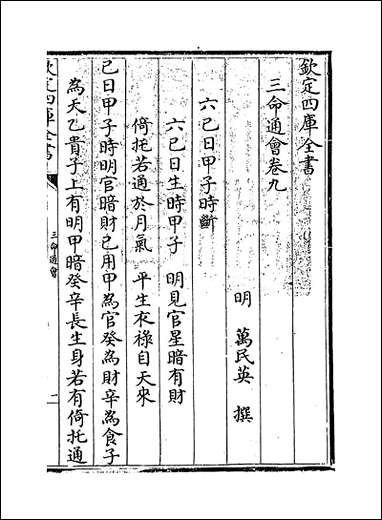 欽定四庫全書
三命通會卷九
明 萬民英 撰
六己日甲子時斷
六己日生時甲子 明見官星暗有財
倚托若通於月氣 平生衣祿自天來
己日甲子時明官暗財己用甲為官癸為財辛為食子
為天乙貴子上有明甲暗癸辛長生身若有倚托通
欽定四庫全書
三命通會